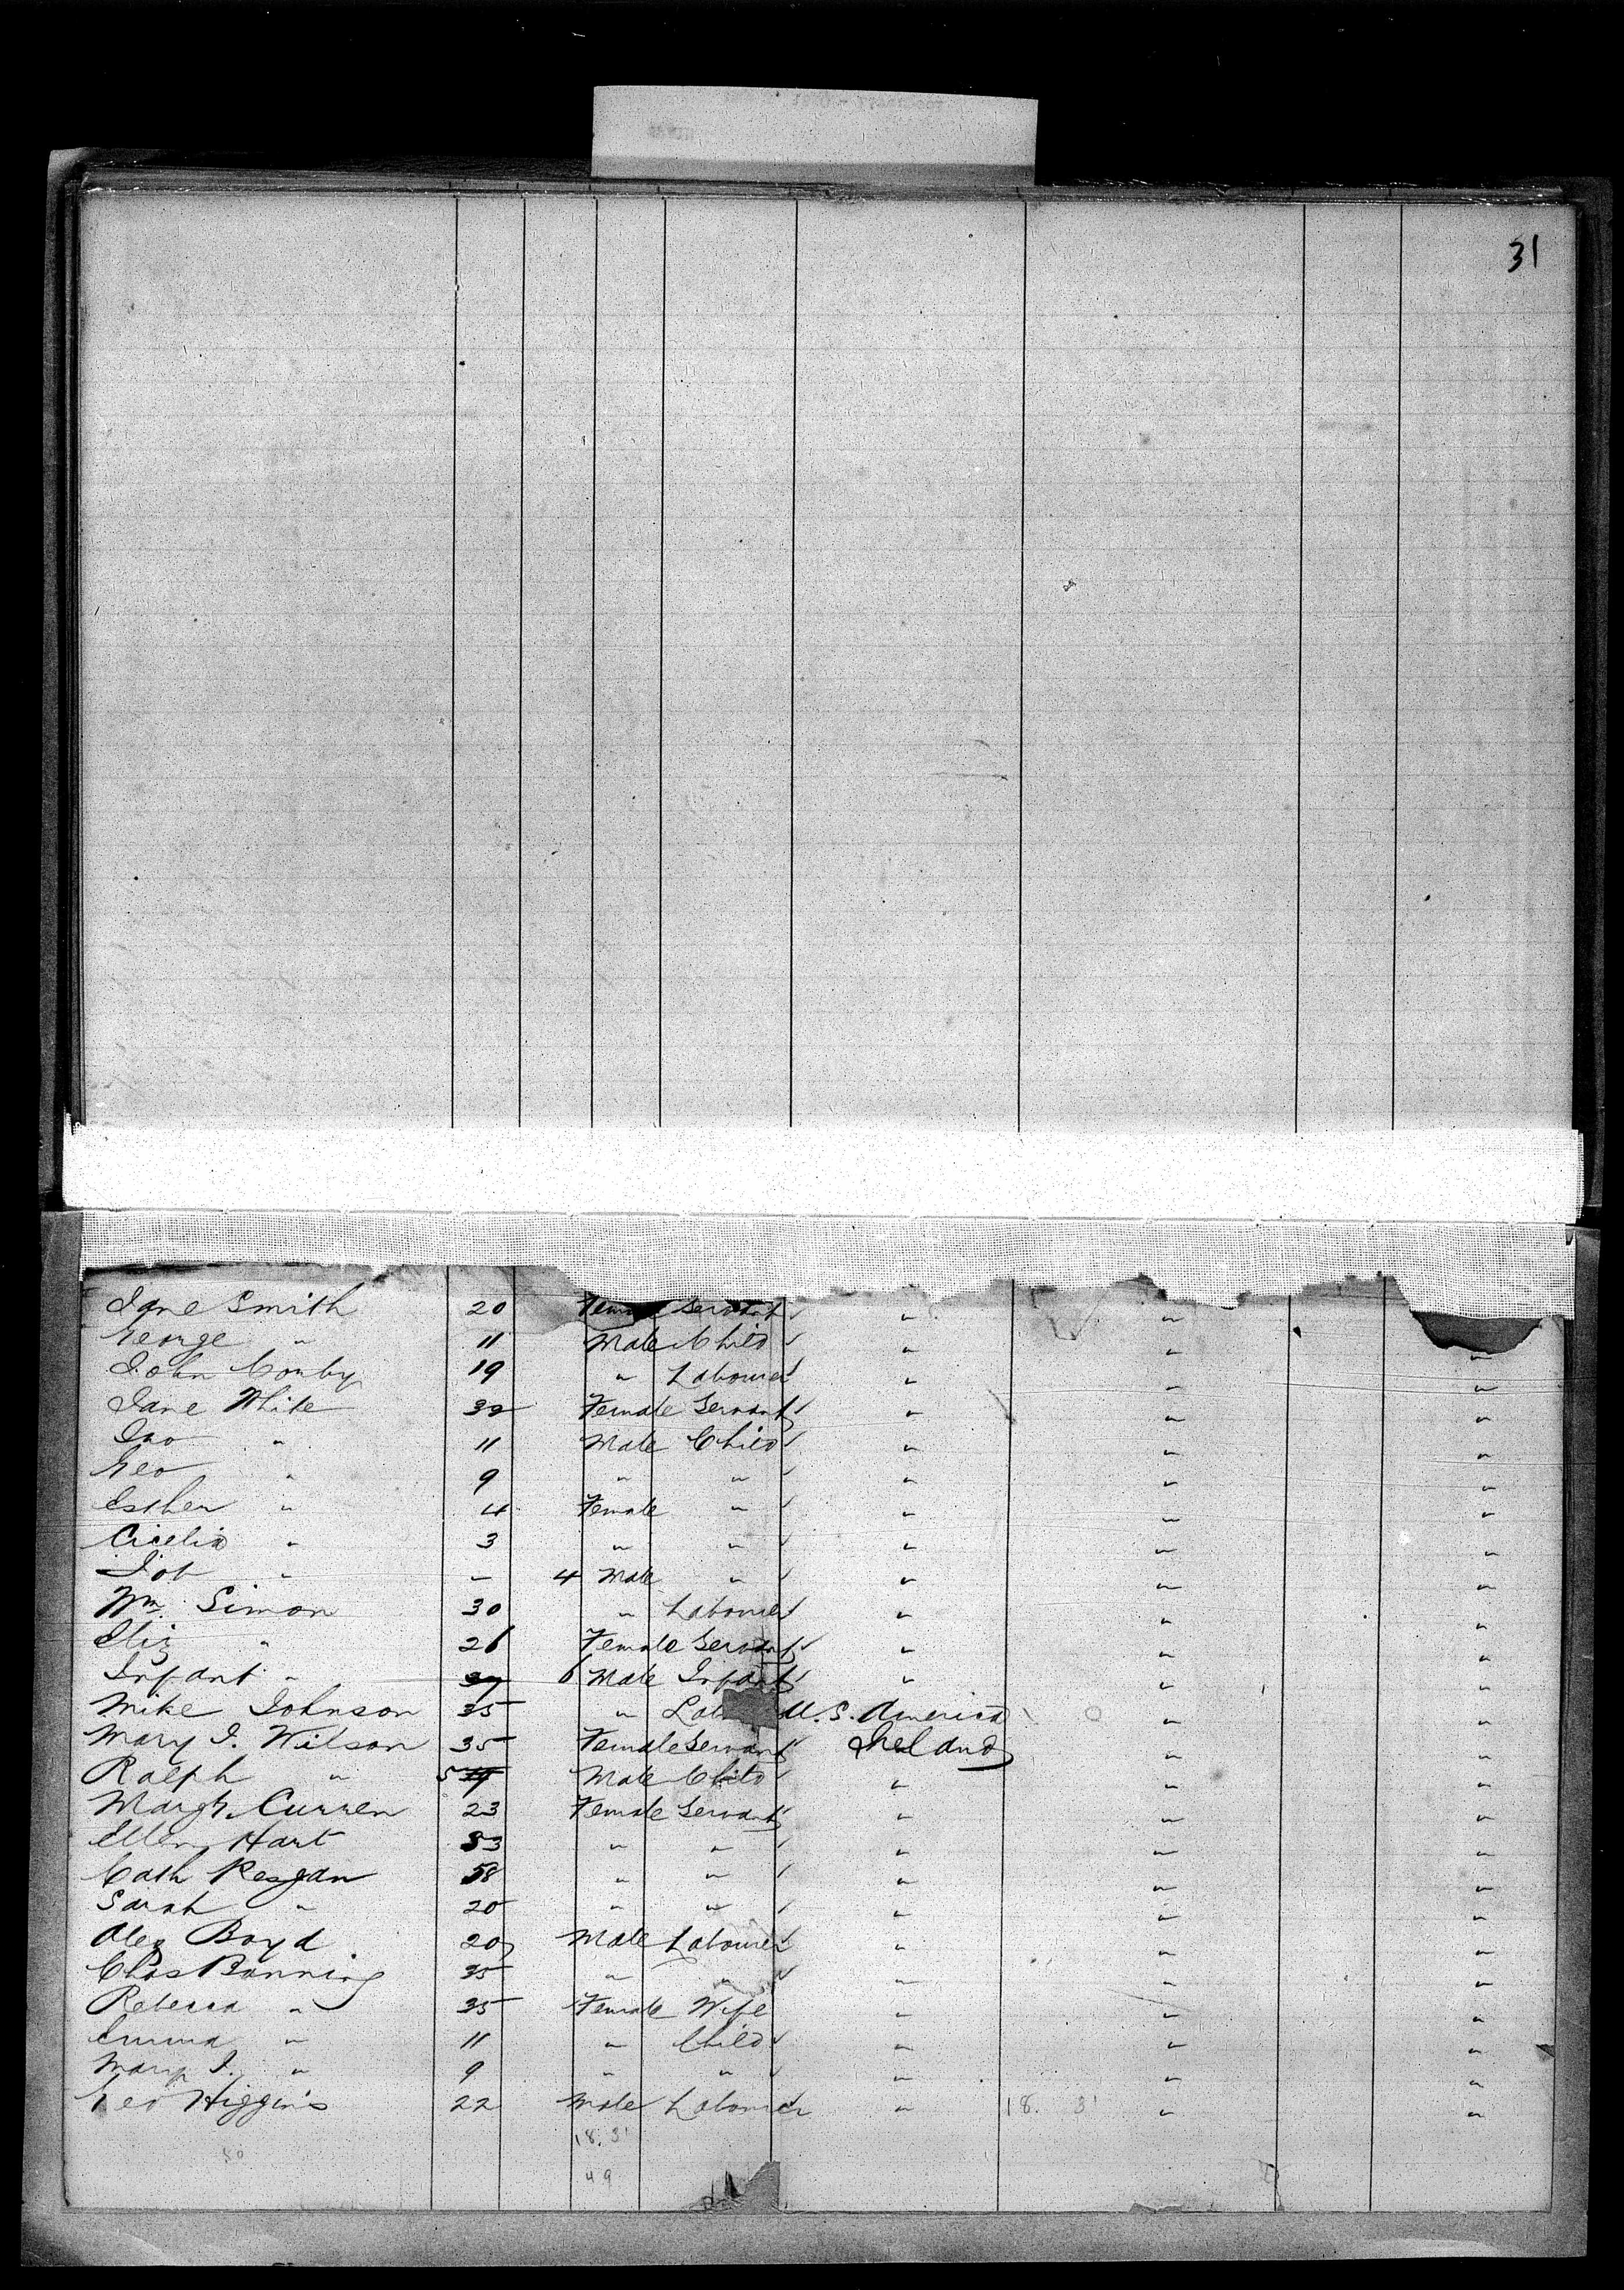 31
Jane Smith 20 Female Servant " " "
George " 11 Male Child " " "
John Conby 19 " Labourer " " "
Jane White 32 Female Servant " " "
Jno " 11 Male Child " " "
Geo " 9 " " " " "
Esther " 4 Female " " " "
Cicelia " 3 " " " " "
Job " - 4 Male " " " "
Wm. Simon 30 " Labourer " " "
Eliz " 26 Female Servant " " "
Infant " 6 Male Infant " " "
Mike Johnson 35 " Lab U.S. America " "
Mary J. Wilson 35 Female Servant Ireland " "
Ralph " 5 Male Child " " "
Margt. Curren 23 Female Servant " " "
Ellen Hart 53 " " " " "
Cath Reagan 58 " " " " "
Sarah " 20 " " " " "
Alex Boyd 20 Male Labourer " " "
Chas Banning 35 " " " " "
Rebecca " 35 Female Wife " " "
Emma " 11 " Child " " "
Mary J. " 9 " " " " "
Geo Higgins 22 Male Labourer " 18. 31 " "
18. 31
50 49